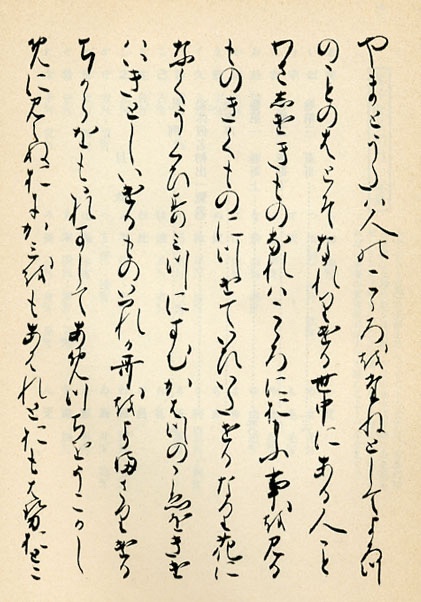 やまとうたは人のこゝろをたねとしてよろつ
のことのはとそなれりける世中にある人こと
わさしけきものなれはこゝろにおもふ事を見る
ものきくものにつけていひいたせるなり花に
なくうくひすみつにすむかはつのこゑをきけ
はいきとしいけるものいつれか哥をよまさりける
ちからをもいれすしてあめつちをうこかし
めに見えぬおにかみをもあはれとおもはせをとこ